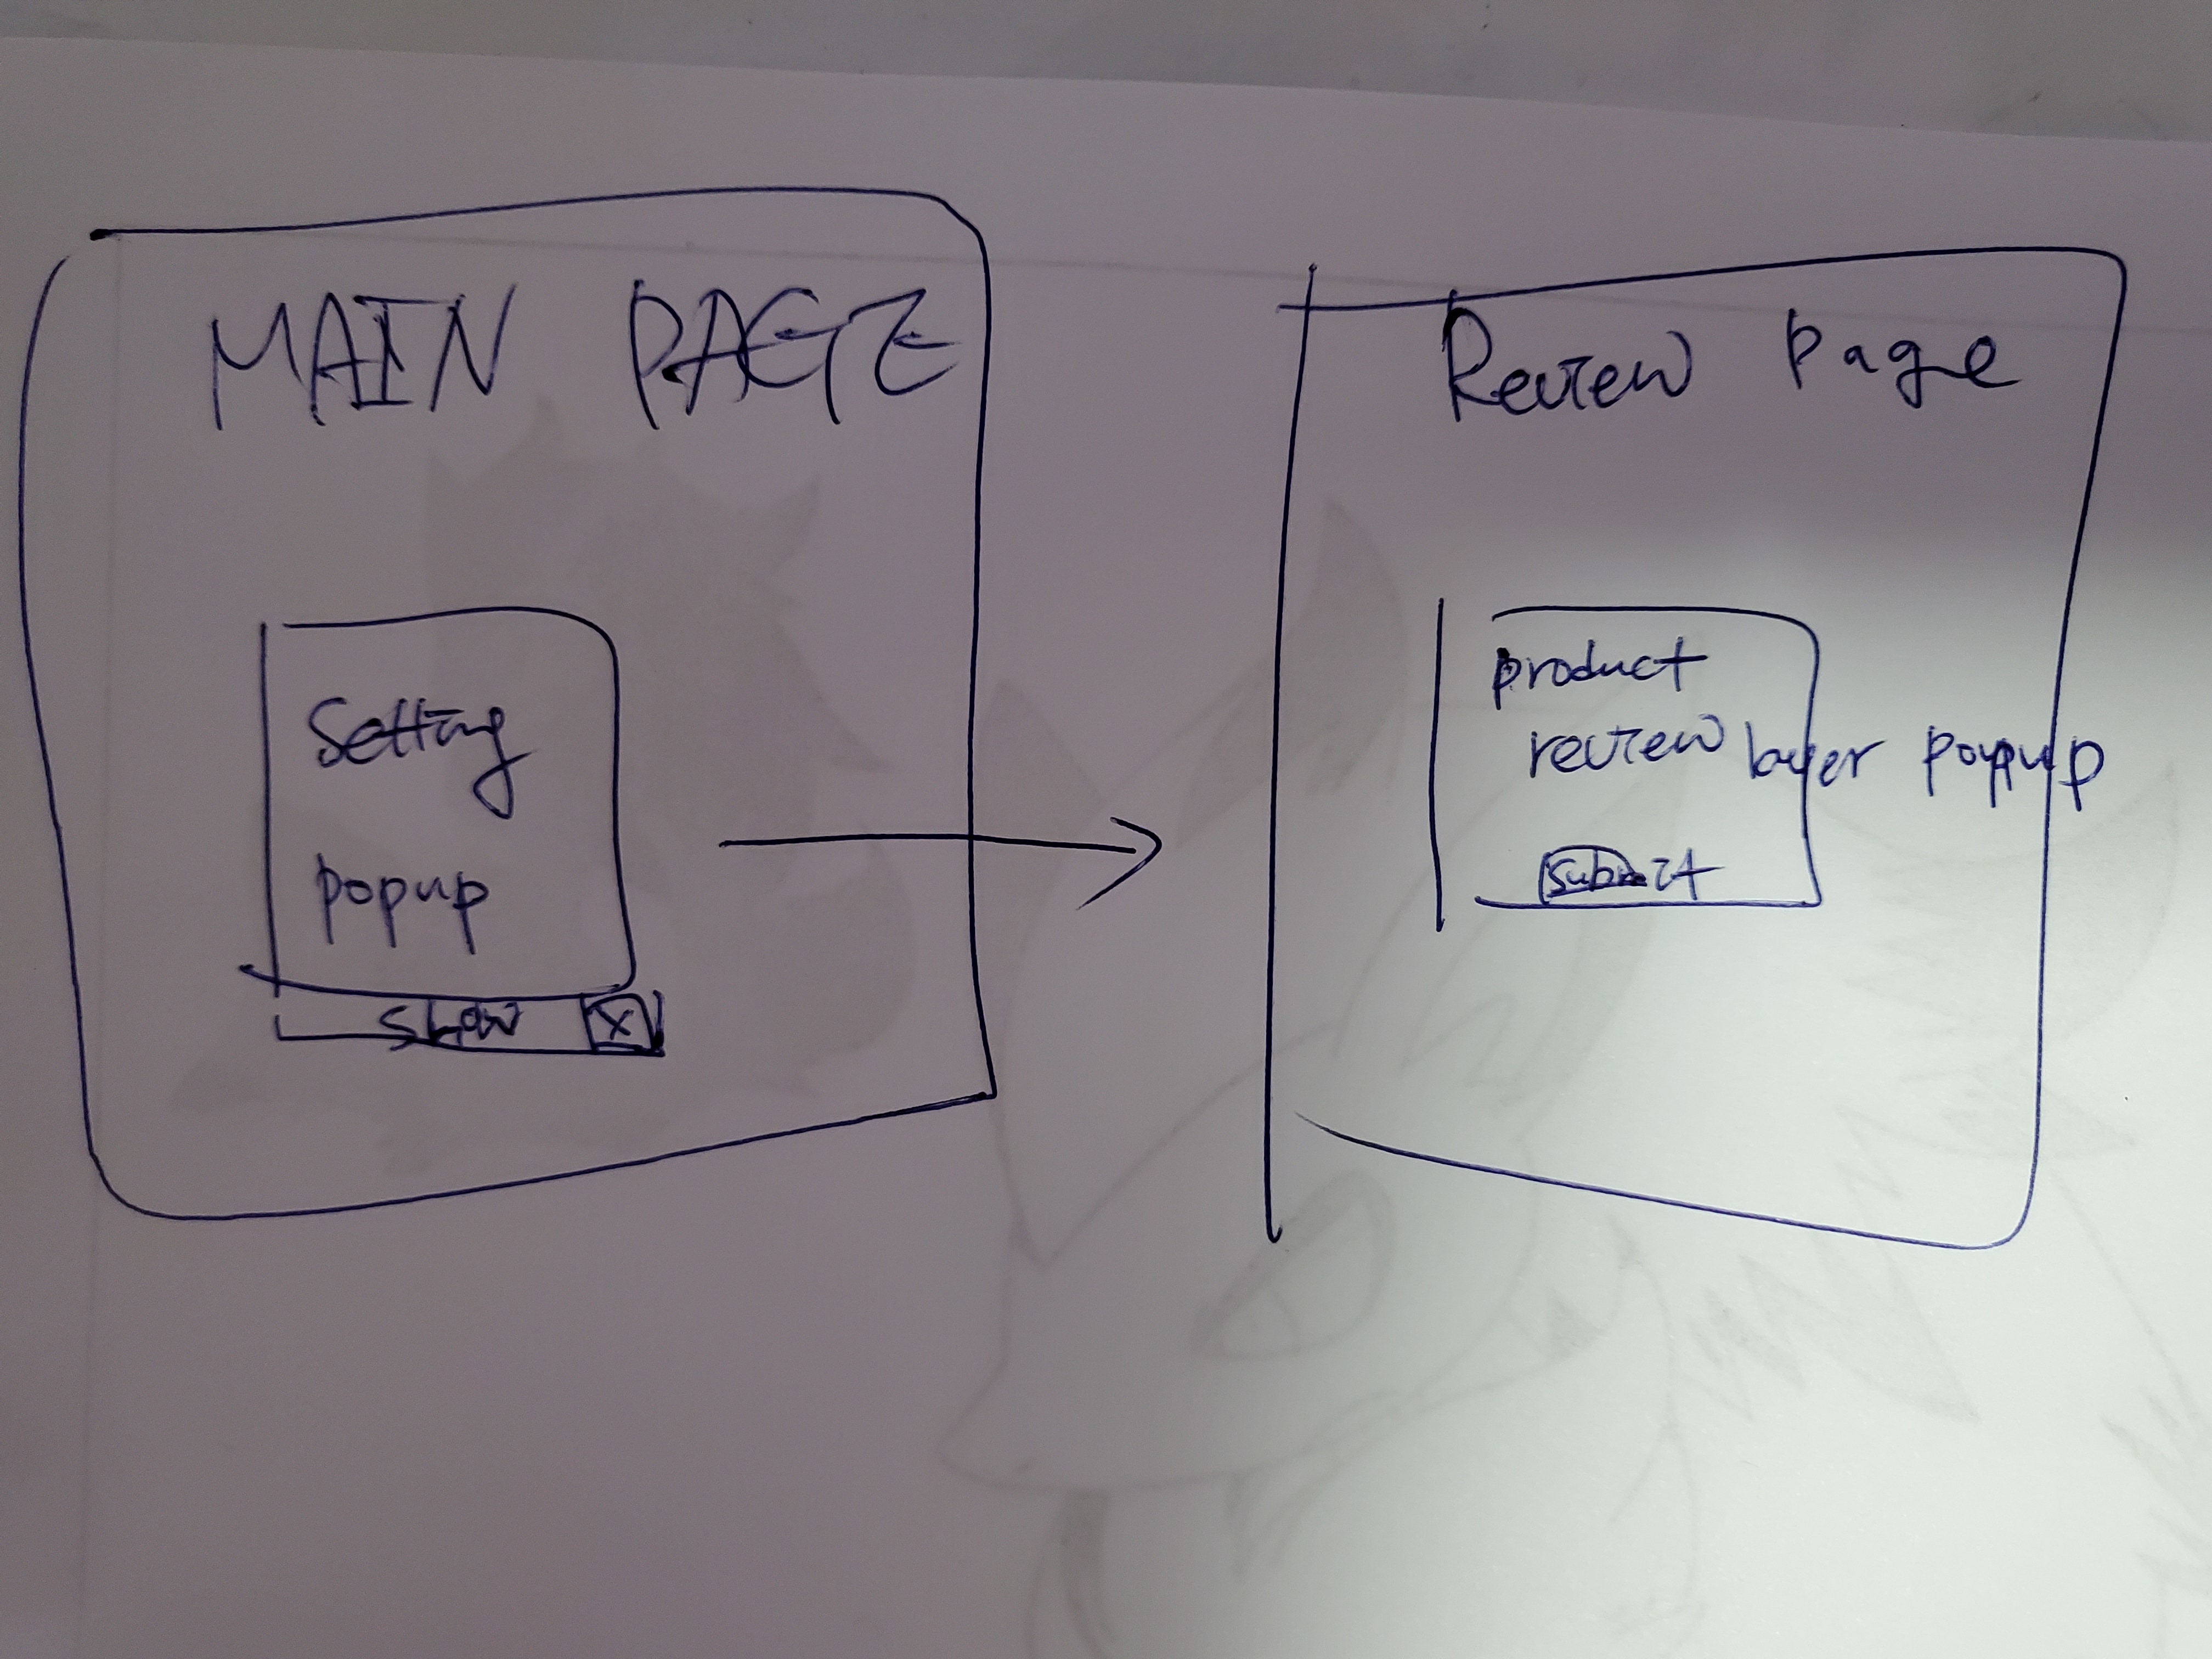 MAIN PAGE
Setting
popup
X
Review page
product
review layer popup
Submit